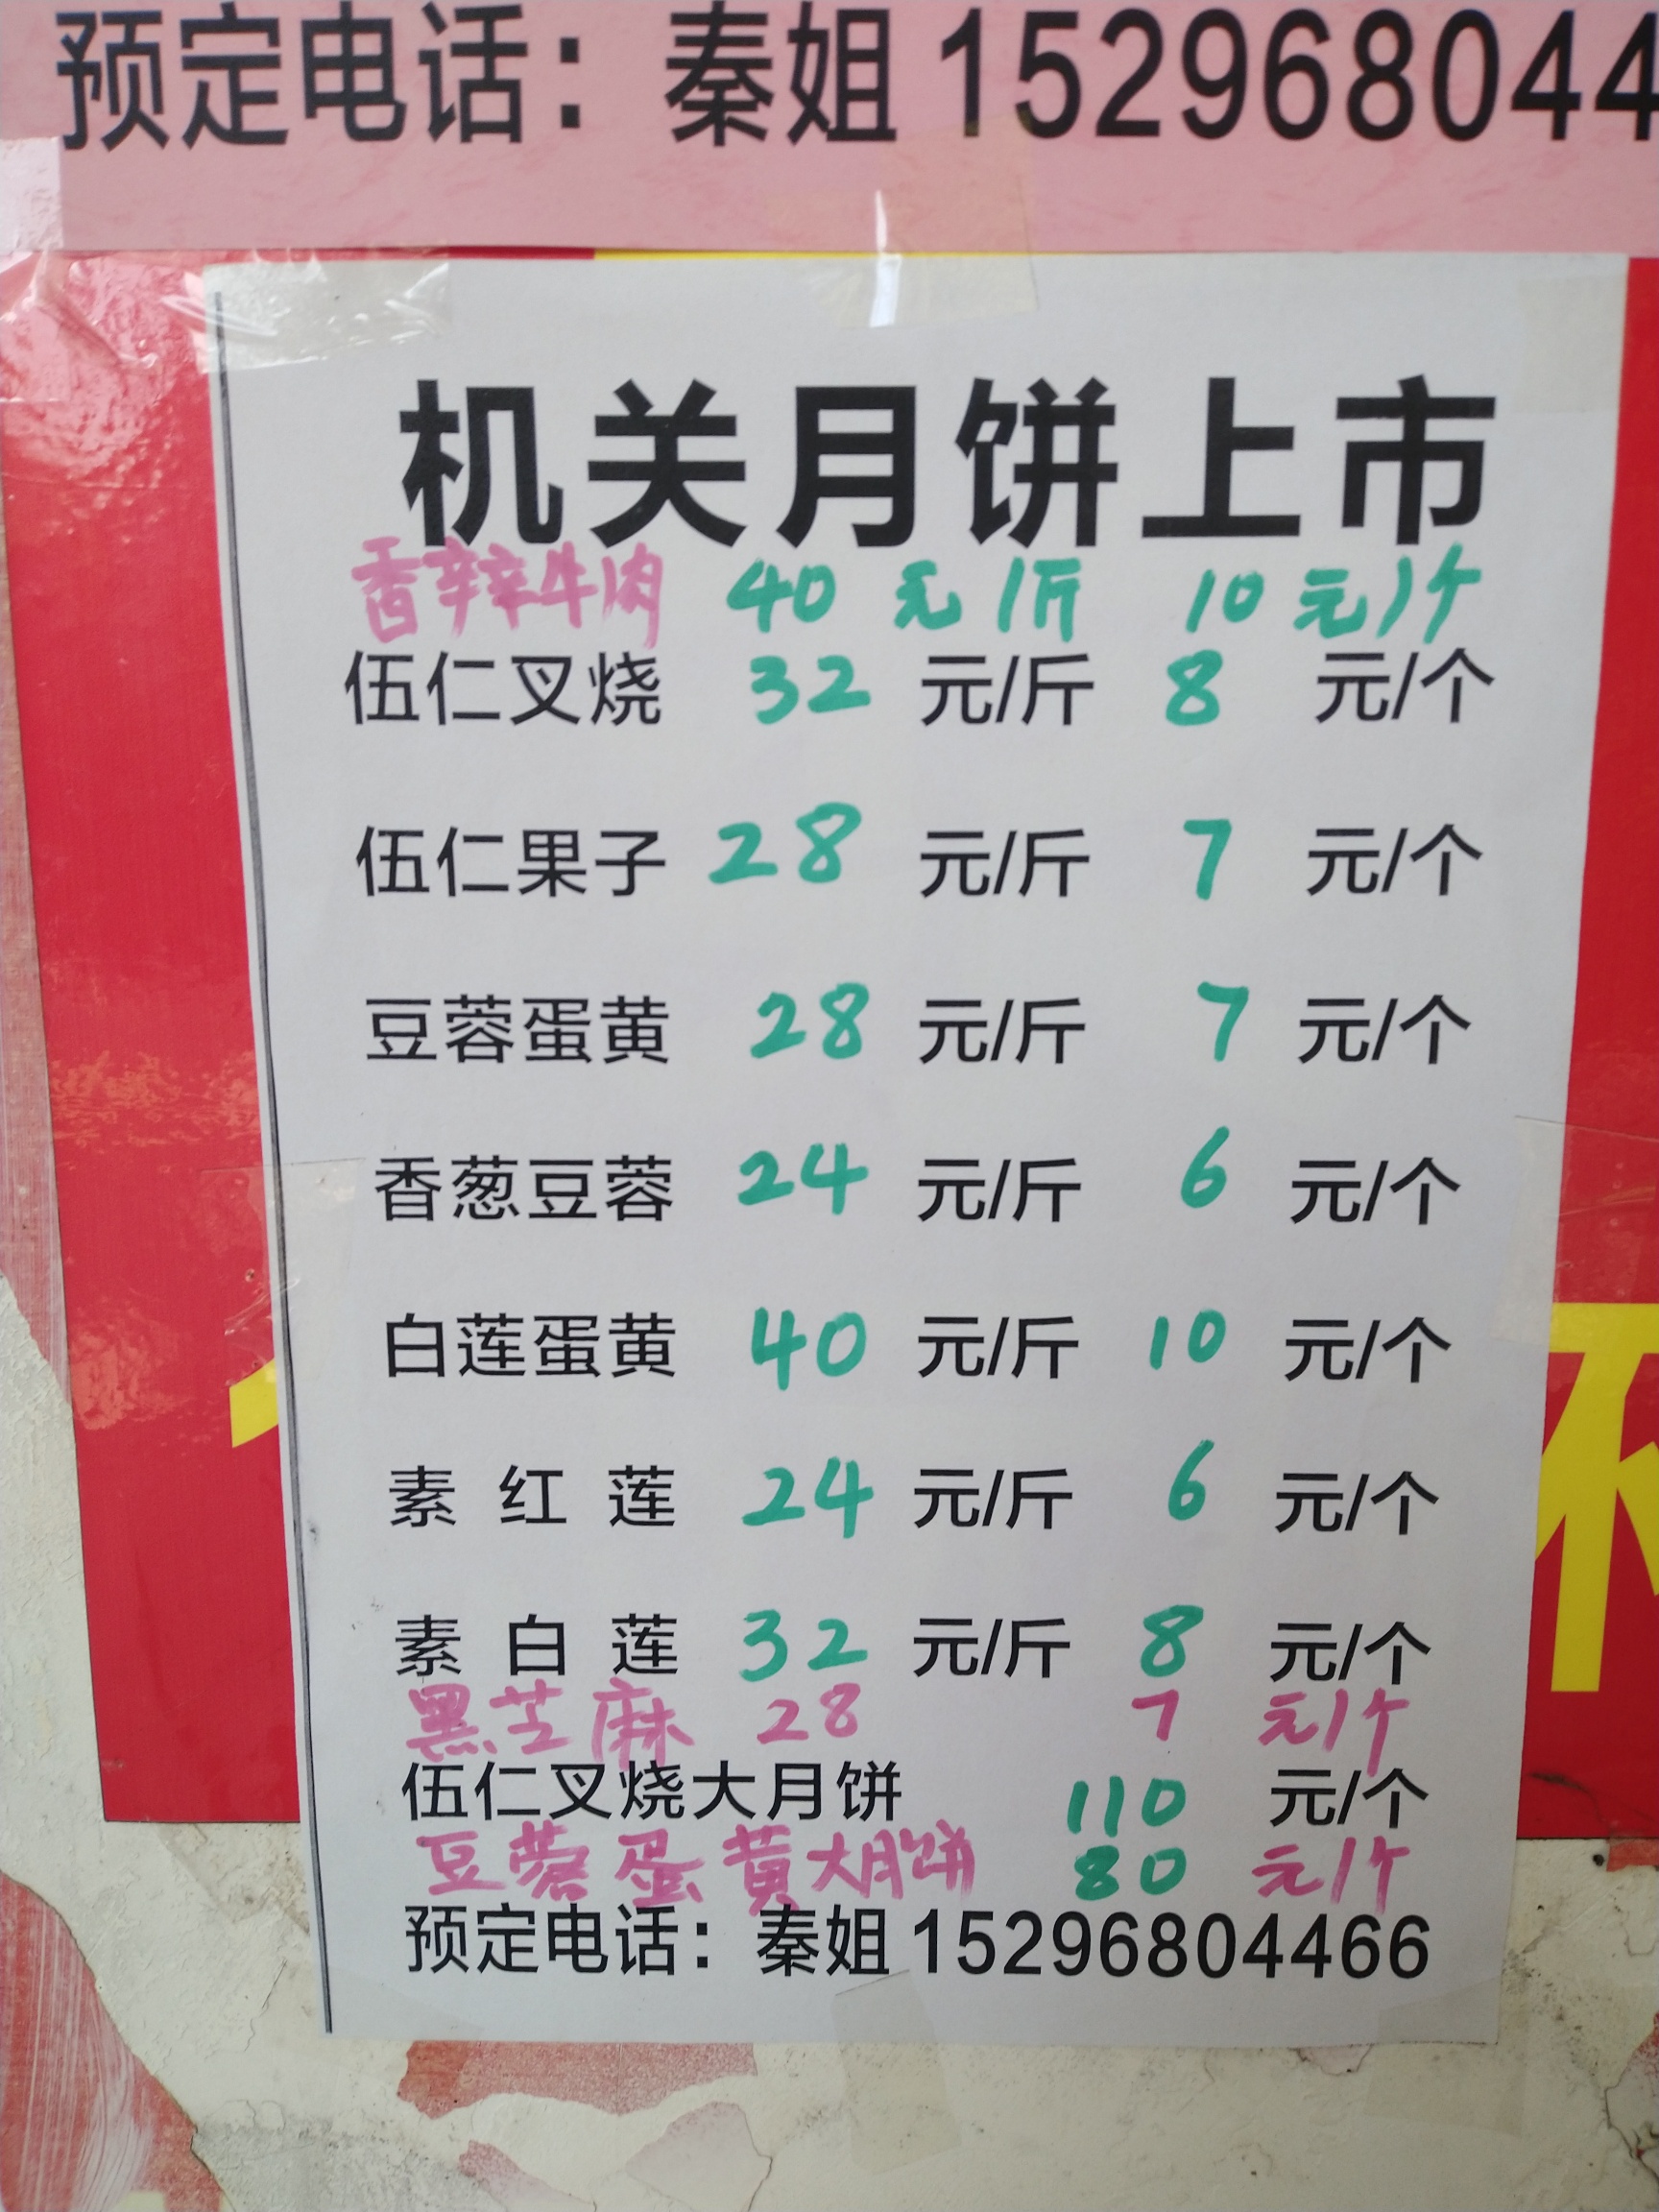 预定电话：秦姐 152968044
机关月饼上市
香辛辛牛肉 40 元/斤 10 元/个
伍仁叉烧 32 元/斤 8 元/个
伍仁果子 28 元/斤 7 元/个
豆蓉蛋黄 28 元/斤 7 元/个
香葱豆蓉 24 元/斤 6 元/个
白莲蛋黄 40 元/斤 10 元/个
素红莲 24 元/斤 6 元/个
素白莲 32 元/斤 8 元/个
黑芝麻 28 7 元/个
伍仁叉烧大月饼 110 元/个
豆蓉蛋黄大月饼 80 元/个
预定电话：秦姐 15296804466